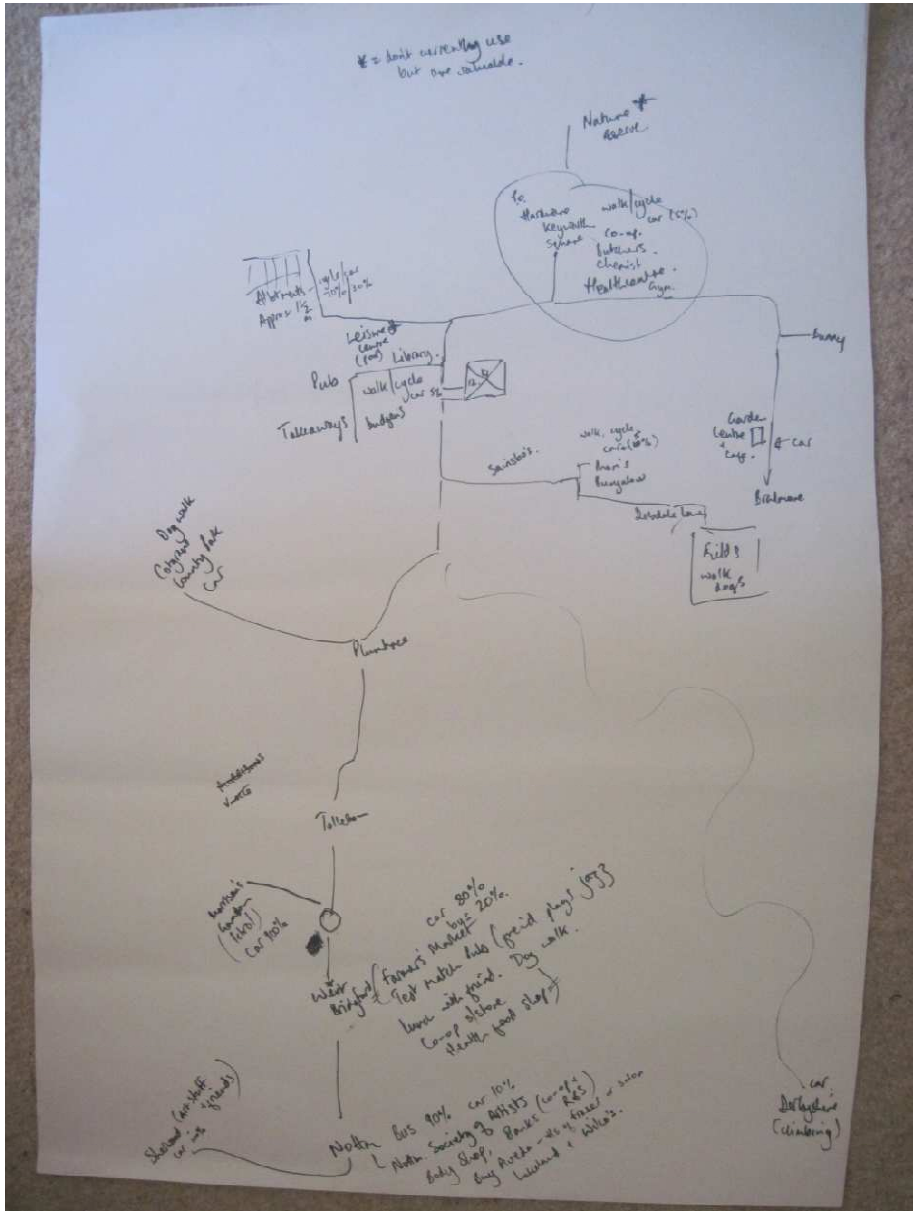 * = don't currently use
but are valuable.
Nature *
reserve
Hardware
Keyworth
Square
walk/cycle
car (5%)
co-op.
butchers.
chemist
Healthcentre.
Gym.
Allotments
Approx 1½
m
cycle/car
30%
Leisure *
centre
(pool)
Library.
Pub
walk/cycle
car 5%
Takeaways
budgens
Bunny
Garden
Centre
+
car
Bradmore
Sainsbo's.
walk, cycle
Mum's
Bungalow
Lane
Fields
walk
dogs
Dog walk
Cotgrave
Country Park
car
Plumtree
Tollerton
(petrol)
car 100%
car 80%
bus 20%.
West
Bridgford
(Farmer's Market
Test Match Pub (friend plays jazz)
lunch with friend. Dog walk.
Co-op s/store
Health food shop)
Sherwood (art stuff
car "friends)
Nottm
Bus 90% car 10%
Nottm. Society of Artists
Body Shop, Banks (co-op + RBS)
Buy Aveda - Hs of Fraser or salon
Wilko's.
car
Derbyshire
(climbing)